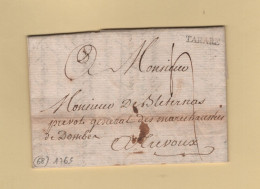 TARARE
A Monsieur
Monsieur de Bleterans
prevot general des marechaussées
de Dombes
A Trevoux
(69) 1765